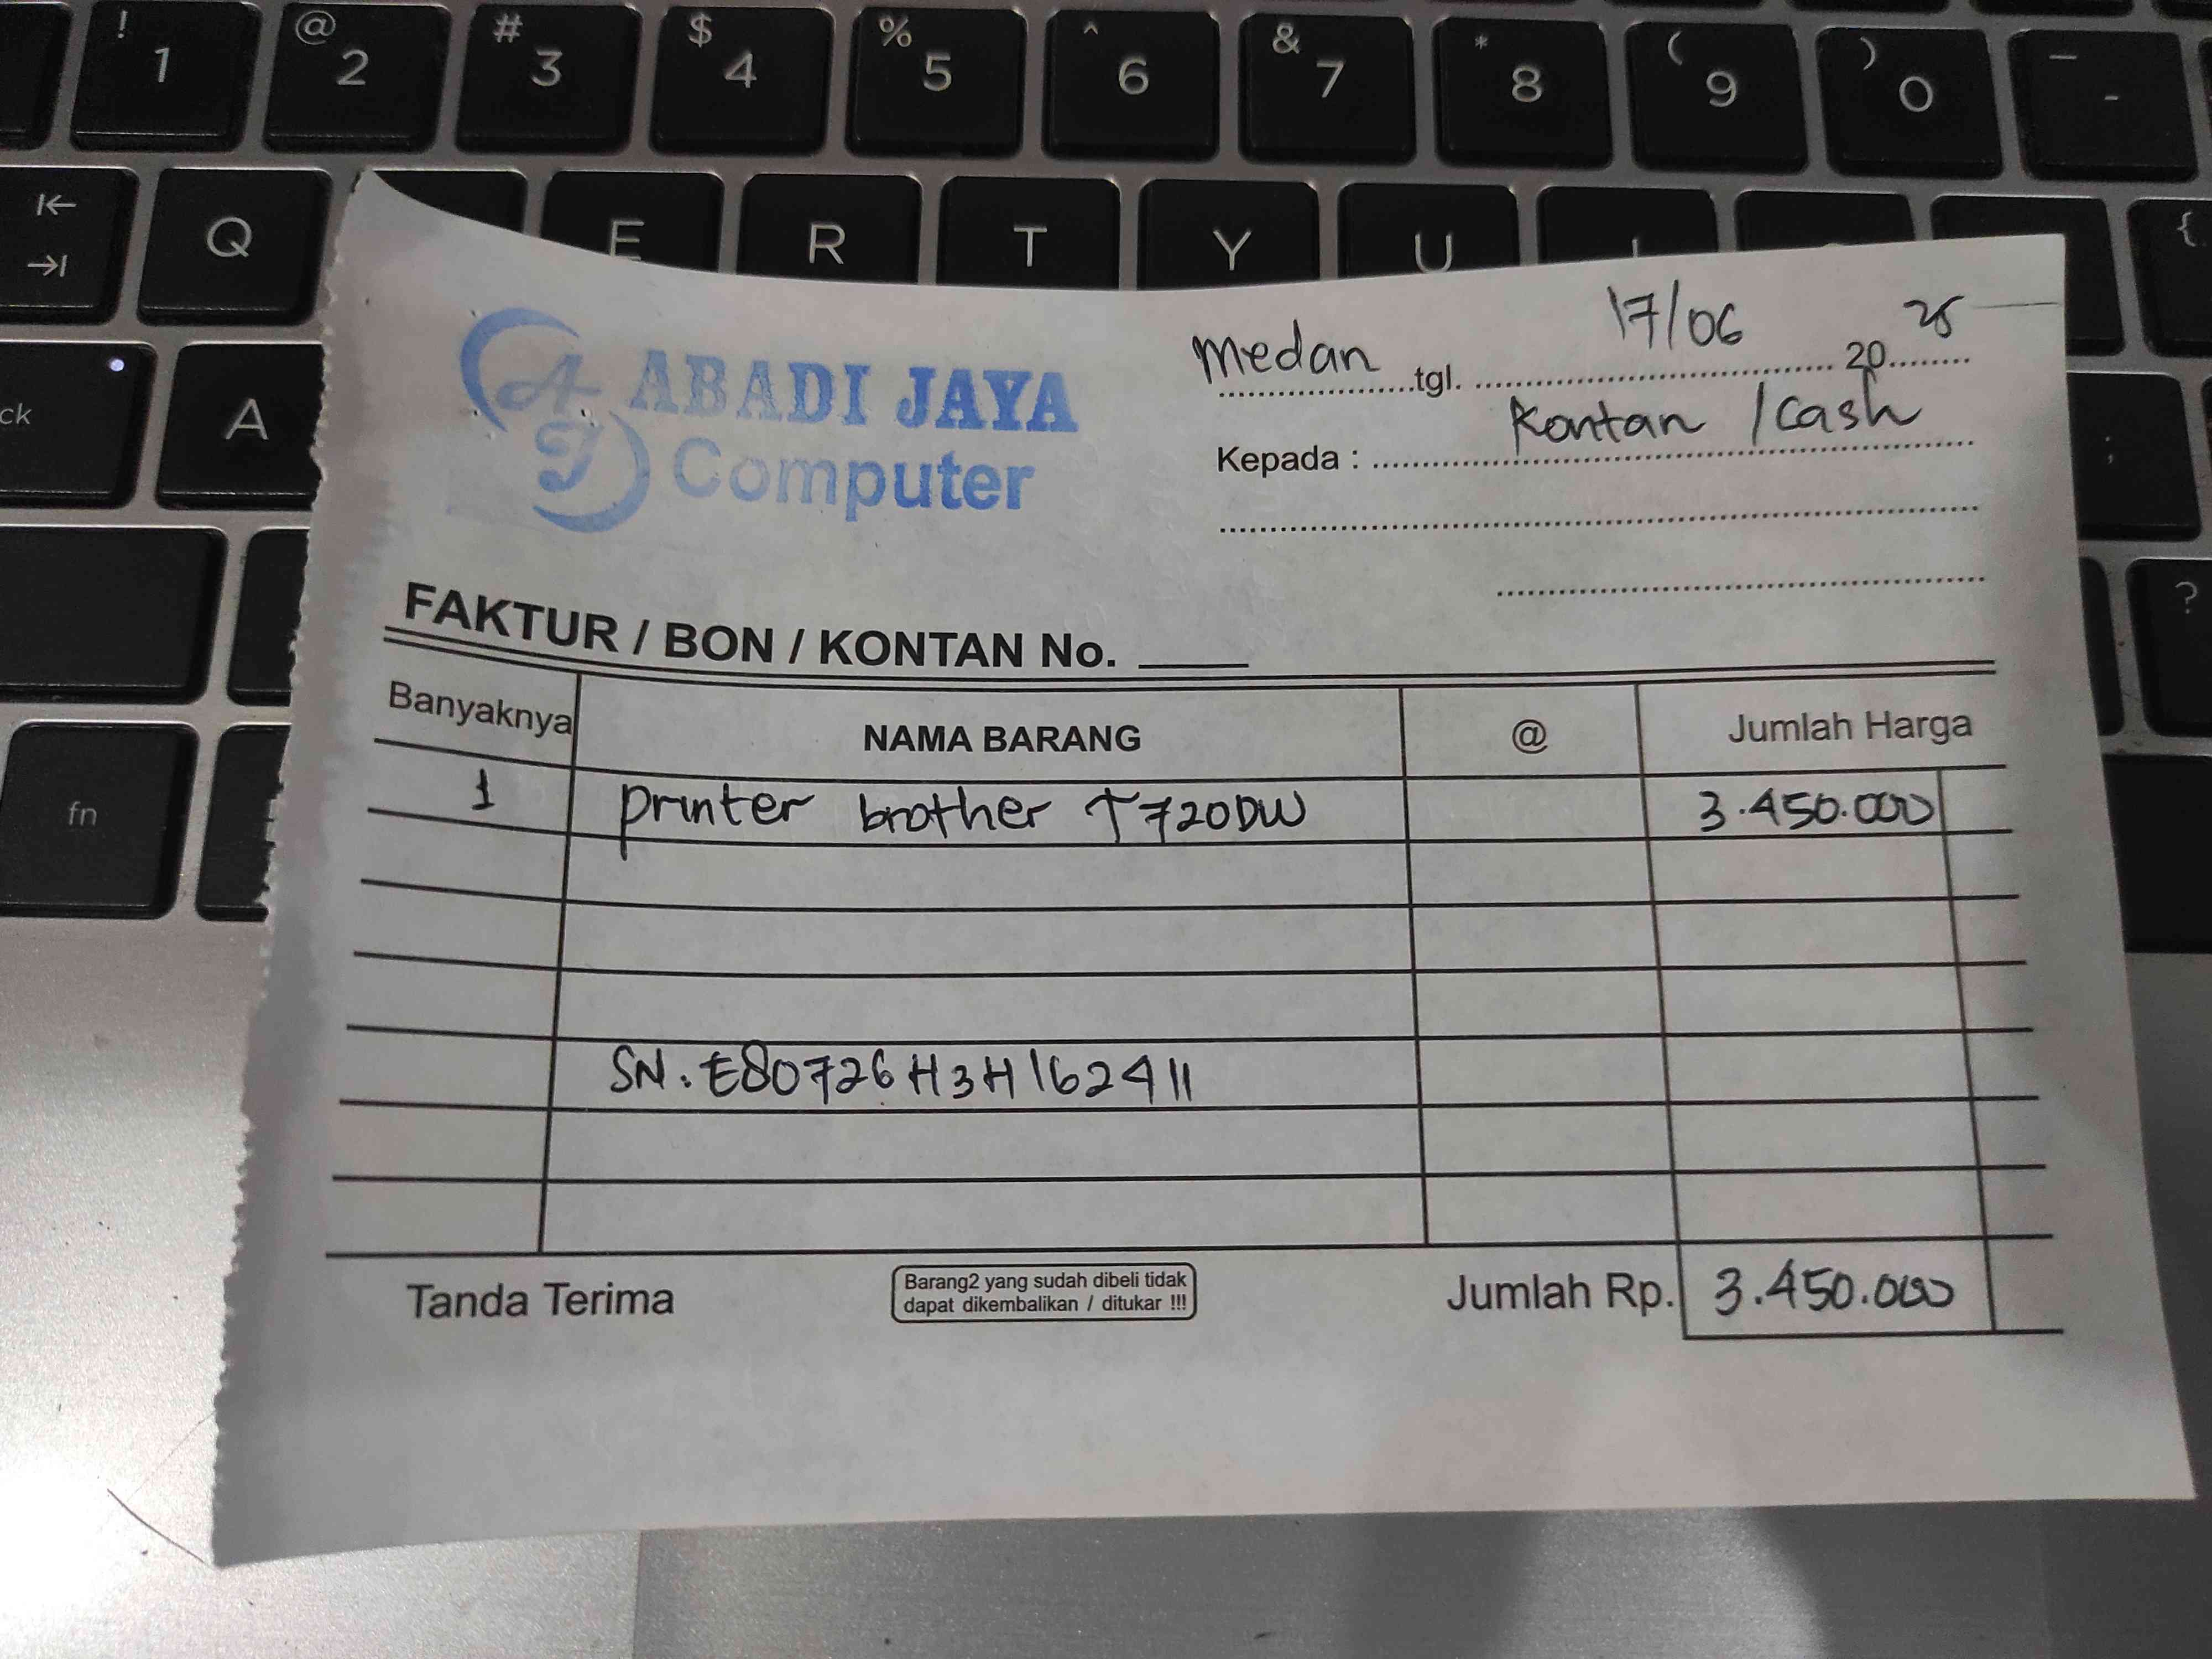 ! 1 @ 2 # 3 $ 4 % 5 ^ 6 & 7 * 8 ( 9 ) 0 _ -
Q E R T Y U {
ck A ;
?
fn
AJ ABADI JAYA
Computer
Medan tgl. 17/06 2025
Kepada : Kontan / Cash
FAKTUR / BON / KONTAN No. ____
Banyaknya NAMA BARANG @ Jumlah Harga
1 printer brother T720DW 3.450.000
SN : E80726H3H162411
Tanda Terima
Barang2 yang sudah dibeli tidak
dapat dikembalikan / ditukar !!!
Jumlah Rp. 3.450.000